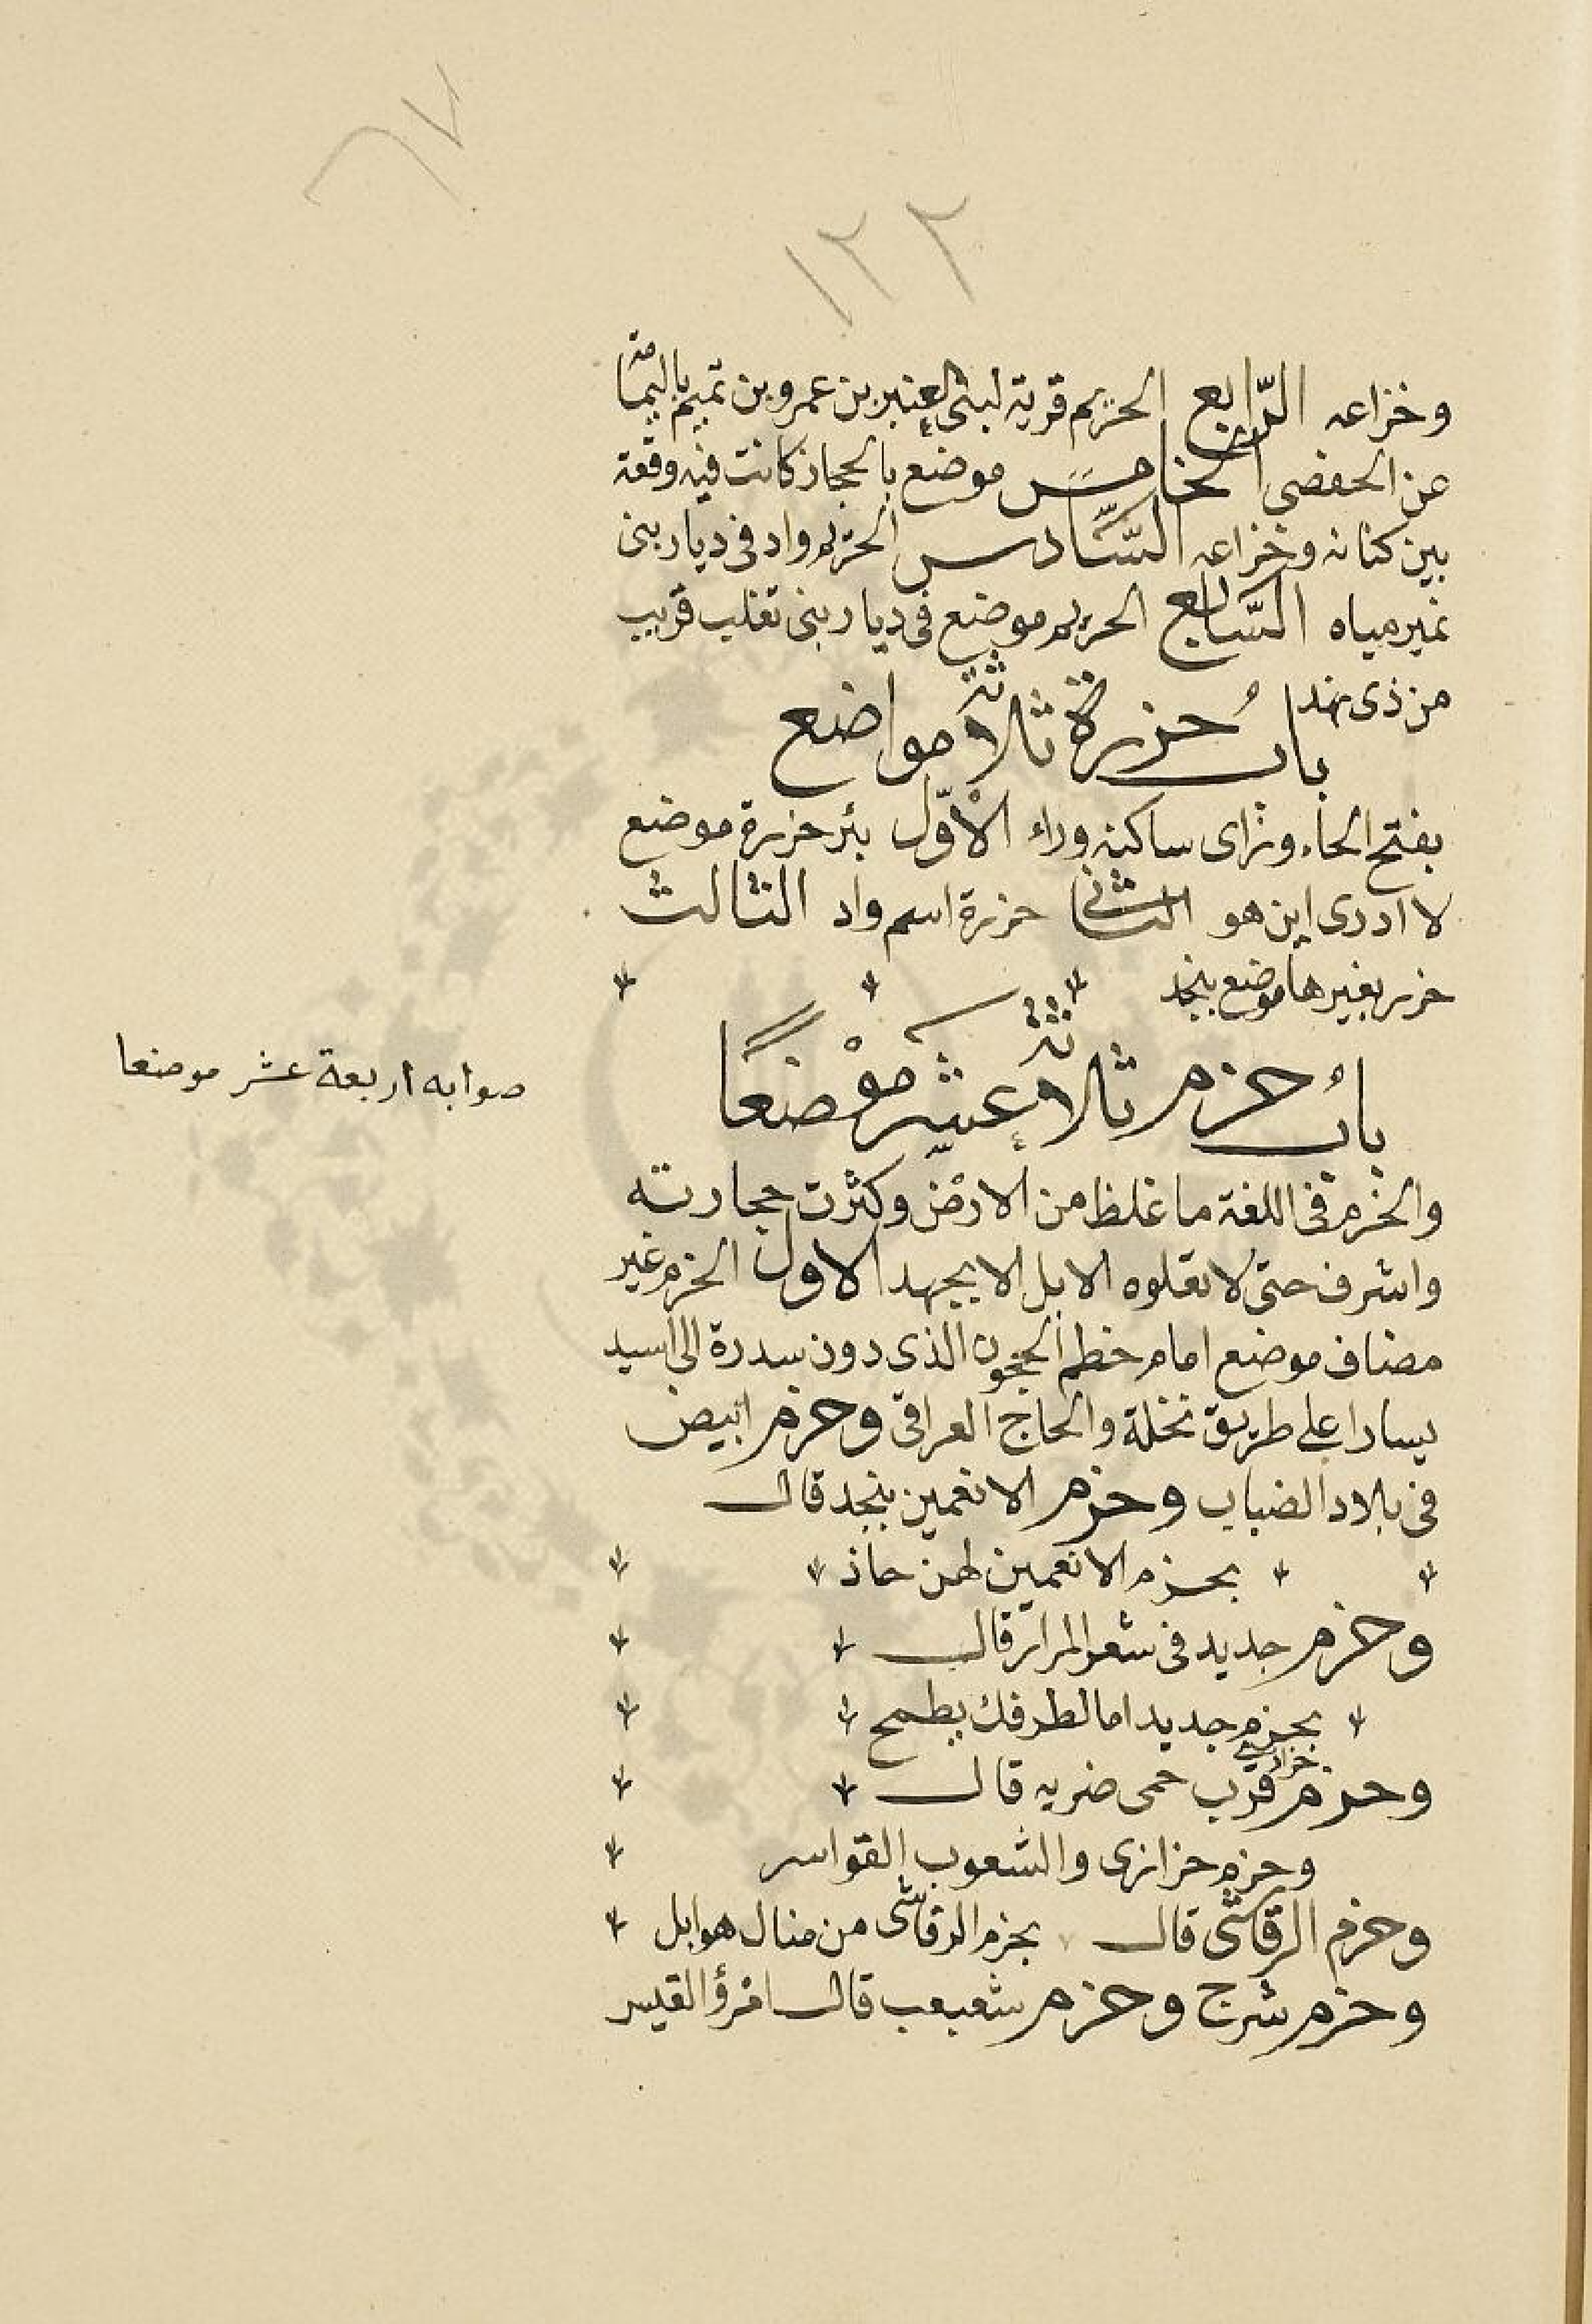 ٦٧
١٢٢
وخزاعه الرّابع الحريم قرية لبنى العنبر بن عمرو بن تميم باليمامة
عن الحفصى الخامس موضع بالحجاز كانت فيه وقعة
بين كنانه وخزاعه السّادس الحريم واد فى ديار بنى
نمير مياه السّابع الحريم موضع فى ديار بنى تغلب قريب
من ذى بهدا
بابُ حزرة ثلاثة مواضع
بفتح الحاء وزاى ساكنه وراء الأوّل بئر حزرة موضع
لا ادرى اين هو الثانى حزرة اسم واد الثالث
حزر بغير ها موضع بنجد
بابُ حزم ثلاثة عشر موْضعًا
صوابه اربعة عشر موضعا
والحزم فى اللغة ما غلظ من الارض وكثرت حجارته
واشرف حتى لا تعلوه الابل الا بجهد الاول الحزم غير
مضاف موضع امام خطم الحجون الذى دون سدرة الى اسيد
يسارا على طريق نخلة والحاج العراقى وحزم ابيض
فى بلاد الضباب وحزم الانعمين بنجد قال
بحزم الانعمين لهن حاذ
وحزم جديد فى شعر المرار قال
بحزم جديد اما لطرفك يطمح
وحزم خزازى قرب حمى ضريه قال
وحزم خزازى والشعوب القواسر
وحزم الرقاشى قال بحزم الرقاشى من منال هوابل
وحزم شرج وحزم شعبعب قال امرؤ القيس